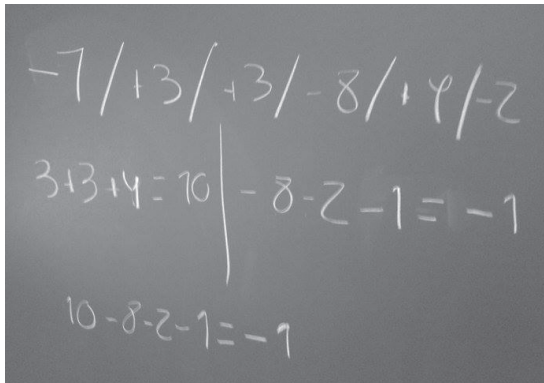 -1/+3/+3/-8/+4/-2
3+3+4=10 | -8-2-1=-1
10-8-2-1=-1